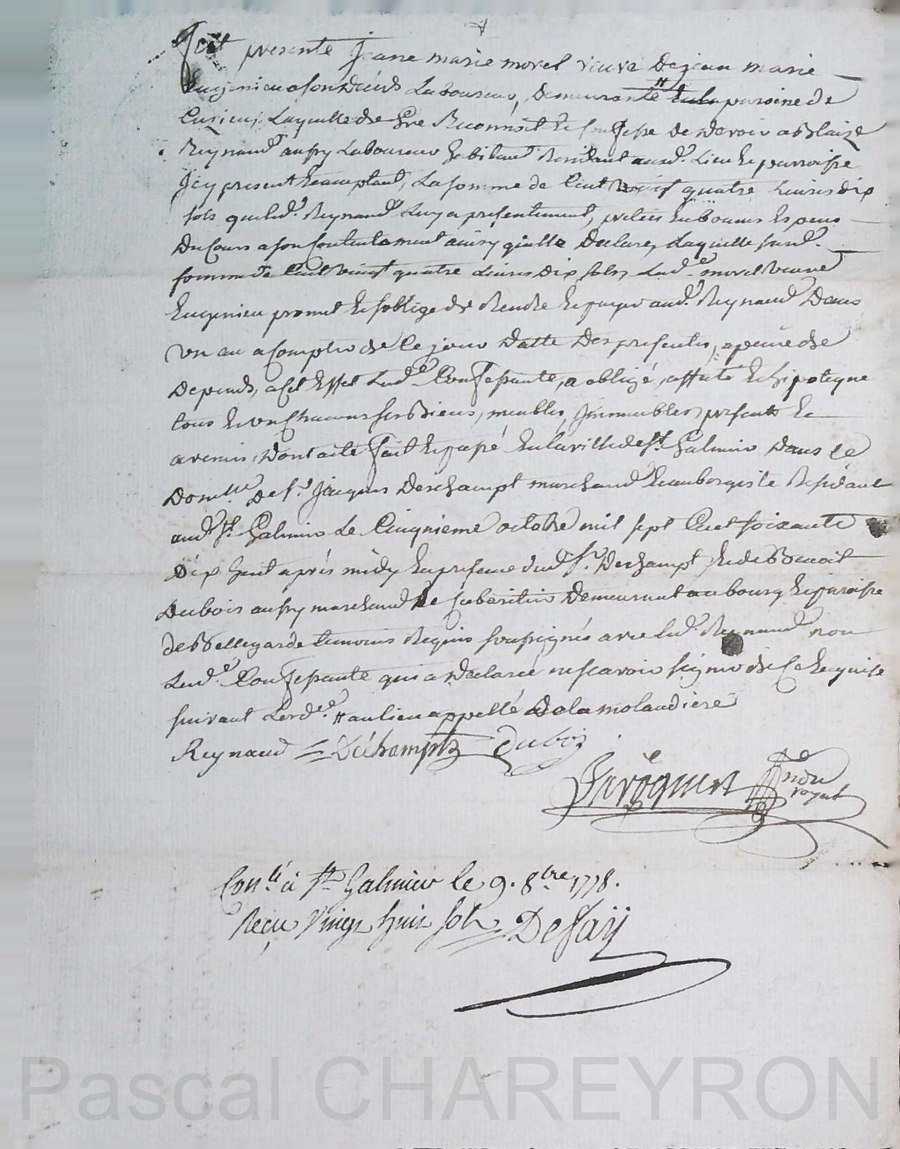 fut presente Jeane marie morel veuve de jean marie
Enjenieu a son déceds Laboureur, demeurante # paroisse de
Curieu, Laquelle de gré Reconnoit et Confesse de devoir a Blaize
Reynaud aussy Laboureur habitant Residant aud. Lieu et parroisse
Jcy present Ceaceptant, La somme de Cent vingt quatre Livres dix
sols que led. Reynaud Luy a presentement, pretée En bonnes Especes
Du Cours a son Contentement ainsy quelle Declare, Laquelle susd.
somme de Cent vingt quatre Livres dix sols, Lad.e morel veuve
Enjenieu promet et soblige de Rendre et payer aud. Reynaud Dans
un an a Compter de Ce jour Datte Des presentes, a peine de
Depends, a Cet Effet Lad.e Confessante, a obligé, affecté et hipoteque
tous et un Chacuns ses Biens, meubles, Jmmeubles, presents et
avenir, Dont acte fait et passé En la ville de St. Galmier Dans Le
Domlle De sr. Jacques Deschampt marchand et aubergiste Residant
aud. St. Galmier Le Cinquieme octobre mil sept Cent soixante
Dix huit après midy En presence dud. sr. Deschampt et de Benoit
Dubois aussy marchand et Demeurant au bourg et paroisse
de Bellegarde temoins Requis soussignés avec Led. Reynaud non
Lad.e Confessante qui a Declarée ne scavoir signer de Ce Requise
suivant Lord.ce # au lieu appellé De la molandiere
Reynaud Déchampt Duboi
nore royal
Conlé à St. Galmier le 9. 8bre 1778.
Reçu Vingt huit sols Defaÿ
Pascal CHAREYRON